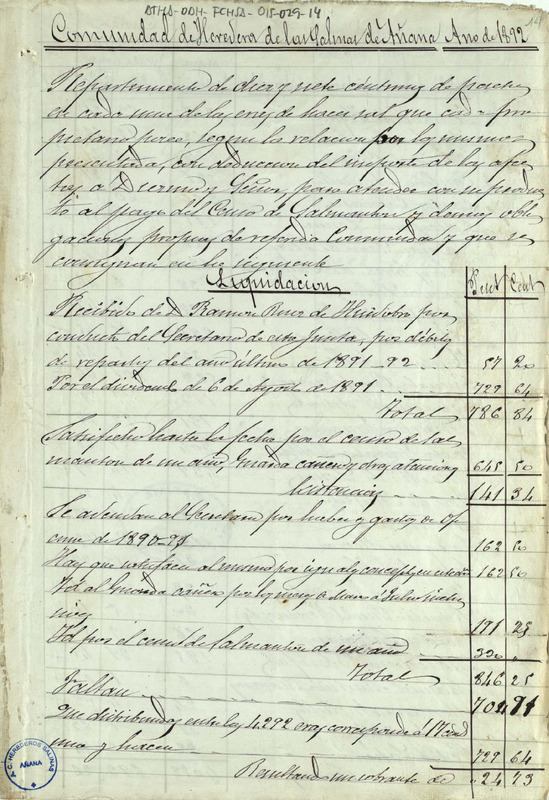 ATHA-DAH-FCHSA-015-029-14
14
Comunidad de Heredera de las Salinas de Añana Año de 1892
Repartimiento de diez y siete céntimos de peseta
en cada una de las eras de hacer sal que cada pro
pietario posee, segun la relacion por los mismos
presentada, con deduccion del importe de las afec
tas a Diezmo y Señor, para atender con su produc
to al pago del Censo de Salmanton y demas obli
gaciones propias de referida Comunidad y que se
consignan en la siguiente
Liquidacion
Peset Cent
Recibido de D Ramon Ruiz de Huidobro por
conducto del Secretario de esta Junta, por débitos
de repartos del año último de 1891-92 57 20
Por el dividendo de 6 de Agosto de 1891 729 64
Total 786 84
Satisfecho hasta la fecha por el censo de Sal
manton de un año, Guarda cañero y otras atenciones 645 50
Existencia 141 34
Se adeudan al Secretario por haber y gastos de Ofi
cina de 1890-91 162 50
Hay que satisfacer al mismo por iguales conceptos en este año 162 50
Id al Guarda cañero por los meses de Marzo á Julio inclu
171 25
Id por el censo de Salmanton de un año 350 "
Total 846 25
Faltan 704 91
Que distribuidas entre las 4.292 eras corresponde á 17 cénti
mos y hacen 729 64
Resultando un sobrante de " 24 73
A.C. HEREDEROS SALINAS
AÑANA